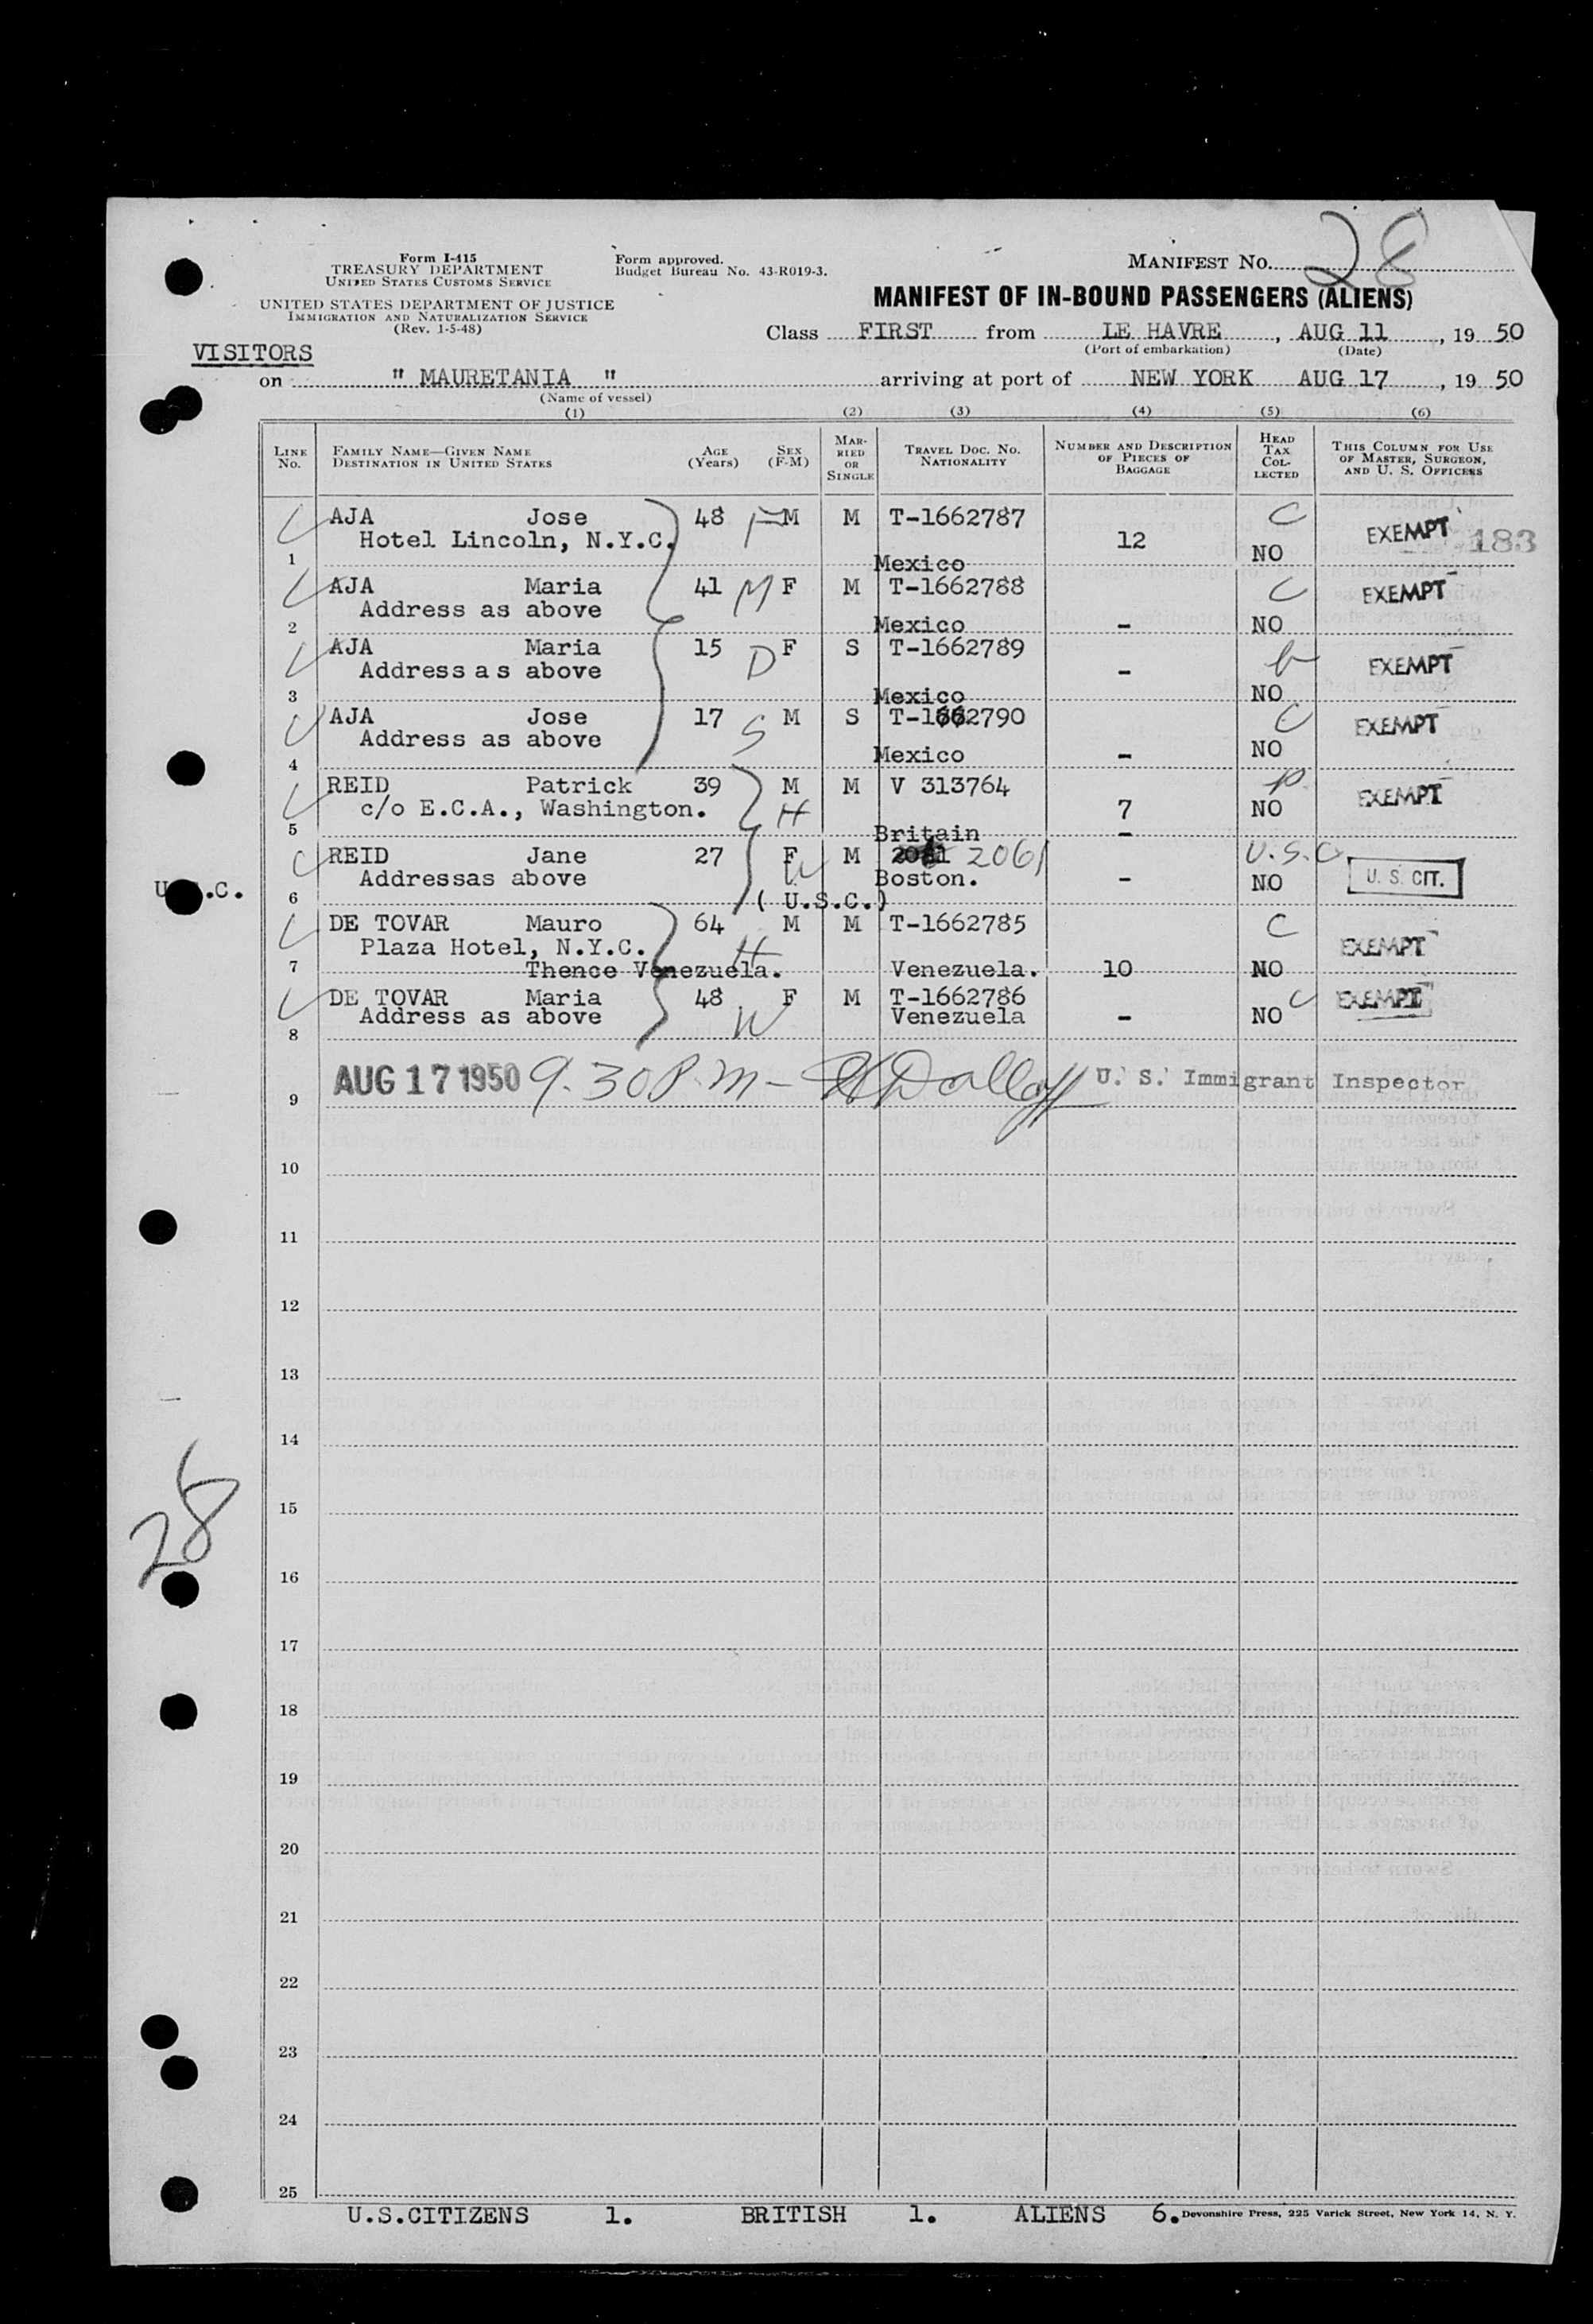 28
Form I-415
TREASURY DEPARTMENT
UNITED STATES CUSTOMS SERVICE
UNITED STATES DEPARTMENT OF JUSTICE
IMMIGRATION AND NATURALIZATION SERVICE
(Rev. 1-5-48)
Form approved.
Budget Bureau No. 43-R019-3.
MANIFEST NO.
MANIFEST OF IN-BOUND PASSENGERS (ALIENS)
Class FIRST from LE HAVRE, AUG 11, 1950
(Port of embarkation) (Date)
VISITORS
on " MAURETANIA " arriving at port of NEW YORK AUG 17, 1950
(Name of vessel)
(1) (2) (3) (4) (5) (6)
LINE No. FAMILY NAME—GIVEN NAME DESTINATION IN UNITED STATES AGE (Years) SEX (F-M) MARRIED OR SINGLE TRAVEL DOC. NO. NATIONALITY NUMBER AND DESCRIPTION OF PIECES OF BAGGAGE HEAD TAX COLLECTED THIS COLUMN FOR USE OF MASTER, SURGEON, AND U. S. OFFICERS
AJA Jose 48 F M M T-1662787 C EXEMPT 183
Hotel Lincoln, N.Y.C. 12 NO
1 Mexico
AJA Maria 41 M F M T-1662788 C EXEMPT
Address as above
2 Mexico - NO
AJA Maria 15 D F S T-1662789 EXEMPT
Address a s above -
3 Mexico NO
AJA Jose 17 S M S T-1662790 C EXEMPT
Address as above NO
4 Mexico -
REID Patrick 39 M M V 313764 EXEMPT
c/o E.C.A., Washington. H 7 NO
5 Britain -
REID Jane 27 F M 2061 U.S.C.
Addressas above W Boston. - NO U. S. CIT.
U. .C. 6 ( U.S.C.)
DE TOVAR Mauro 64 M M T-1662785 C EXEMPT
Plaza Hotel, N.Y.C. H
7 Thence Venezuela. Venezuela. 10 NO
DE TOVAR Maria 48 F M T-1662786 C EXEMPT
Address as above W Venezuela - NO
8
AUG 17 1950 9.30 P.M - U. S. Immigrant Inspector
9
10
11
12
13
14
28
15
16
17
18
19
20
21
22
23
24
25
U.S.CITIZENS 1. BRITISH 1. ALIENS 6. Devonshire Press, 225 Varick Street, New York 14, N. Y.